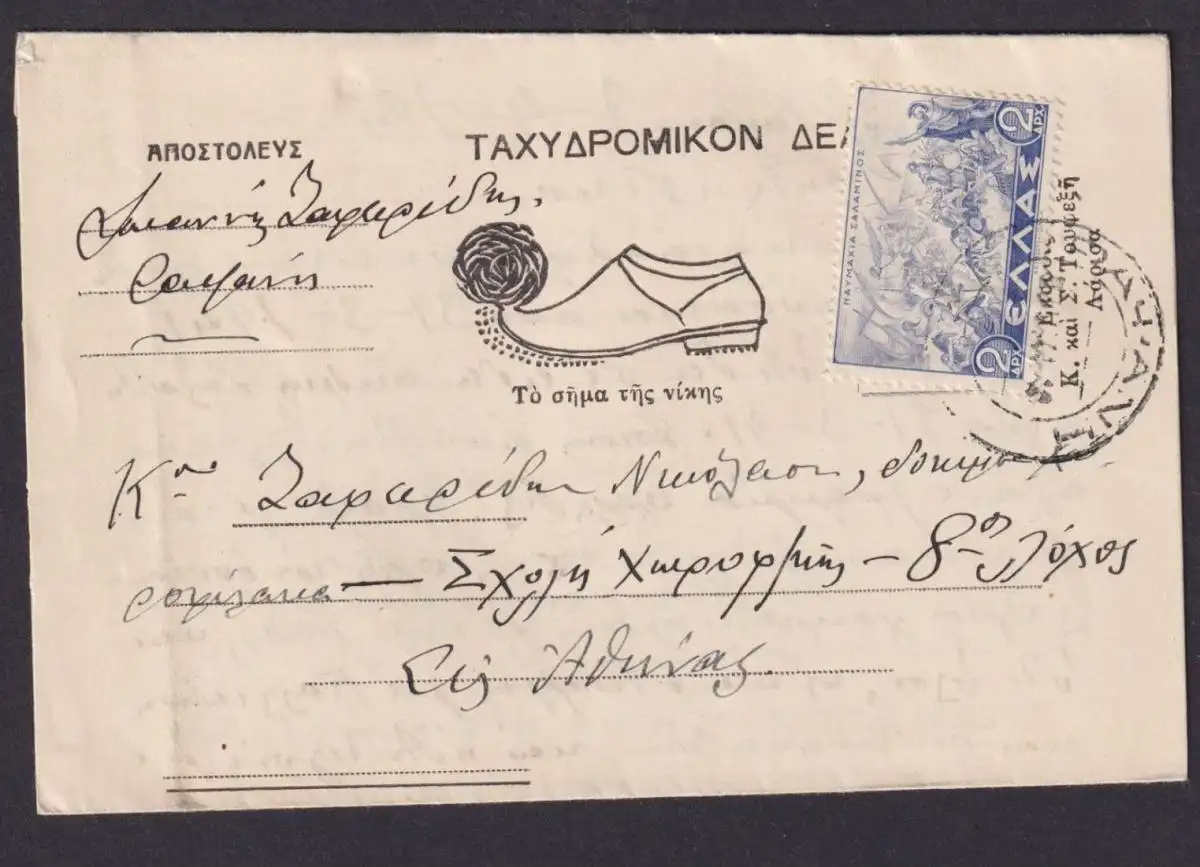 ΑΠΟΣΤΟΛΕΥΣ
ΤΑΧΥΔΡΟΜΙΚΟΝ ΔΕΛ
Ζαφειρίδης
Ραψάνη
Τὸ σῆμα τῆς νίκης
ΝΑΥΜΑΧΙΑ ΣΑΛΑΜΙΝΟΣ
ΕΛΛΑΣ
2 ΔΡΧ
2 ΔΡΧ
Κ. καὶ Σ. Τουφεξῆ
Λάρισα
ΡΑΨΑΝΗ
Κον Ζαφειρίδην Νικόλαον, δόκιμον
Σχολή Χωροφ/κής – 8ος λόχος
Εἰς Ἀθήνας